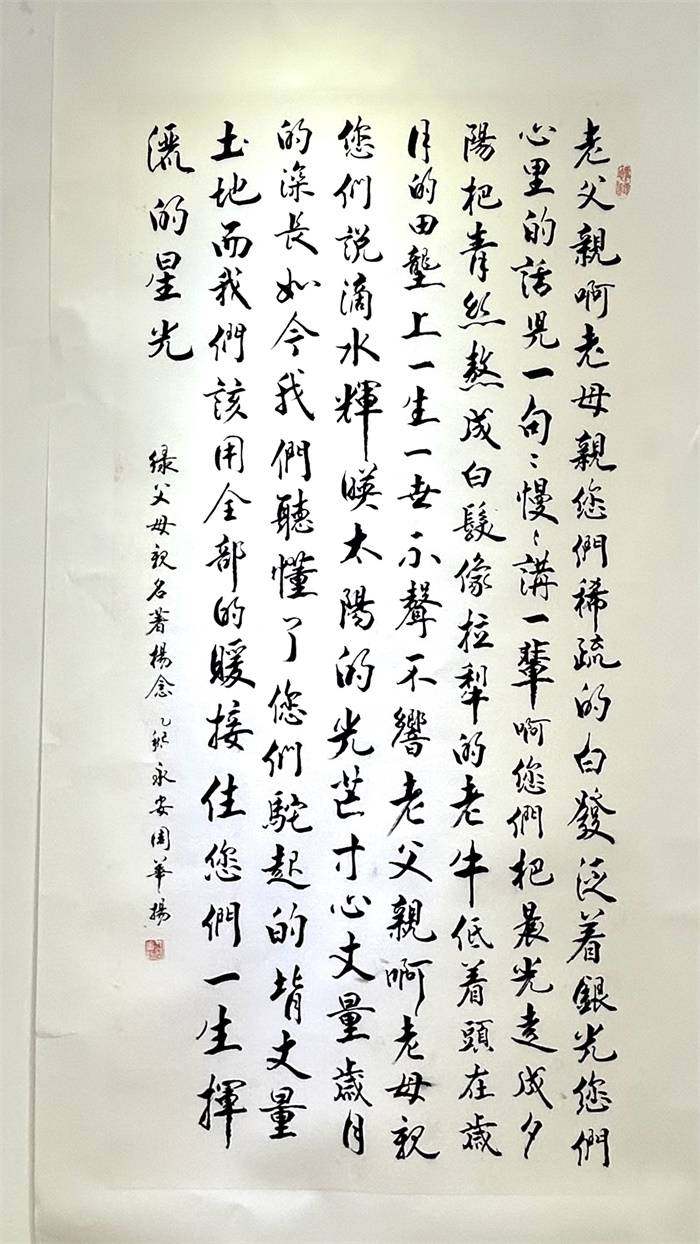 老父親啊老母親您們稀疏的白發泛着銀光您們
心里的話兒一句〻慢〻講一輩啊您們把晨光走成夕
陽把青丝熬成白髮像拉犁的老牛低着頭在歲
月的田壟上一生一世不聲不響老父親啊老母親
您們說滴水輝暎太陽的光芒寸心丈量歲月
的深長如今我們聽懂了您們駝起的背丈量
土地而我們該用全部的暖接住您們一生揮
灑的星光
緑父母親名著楊念 乙 永安周華揚